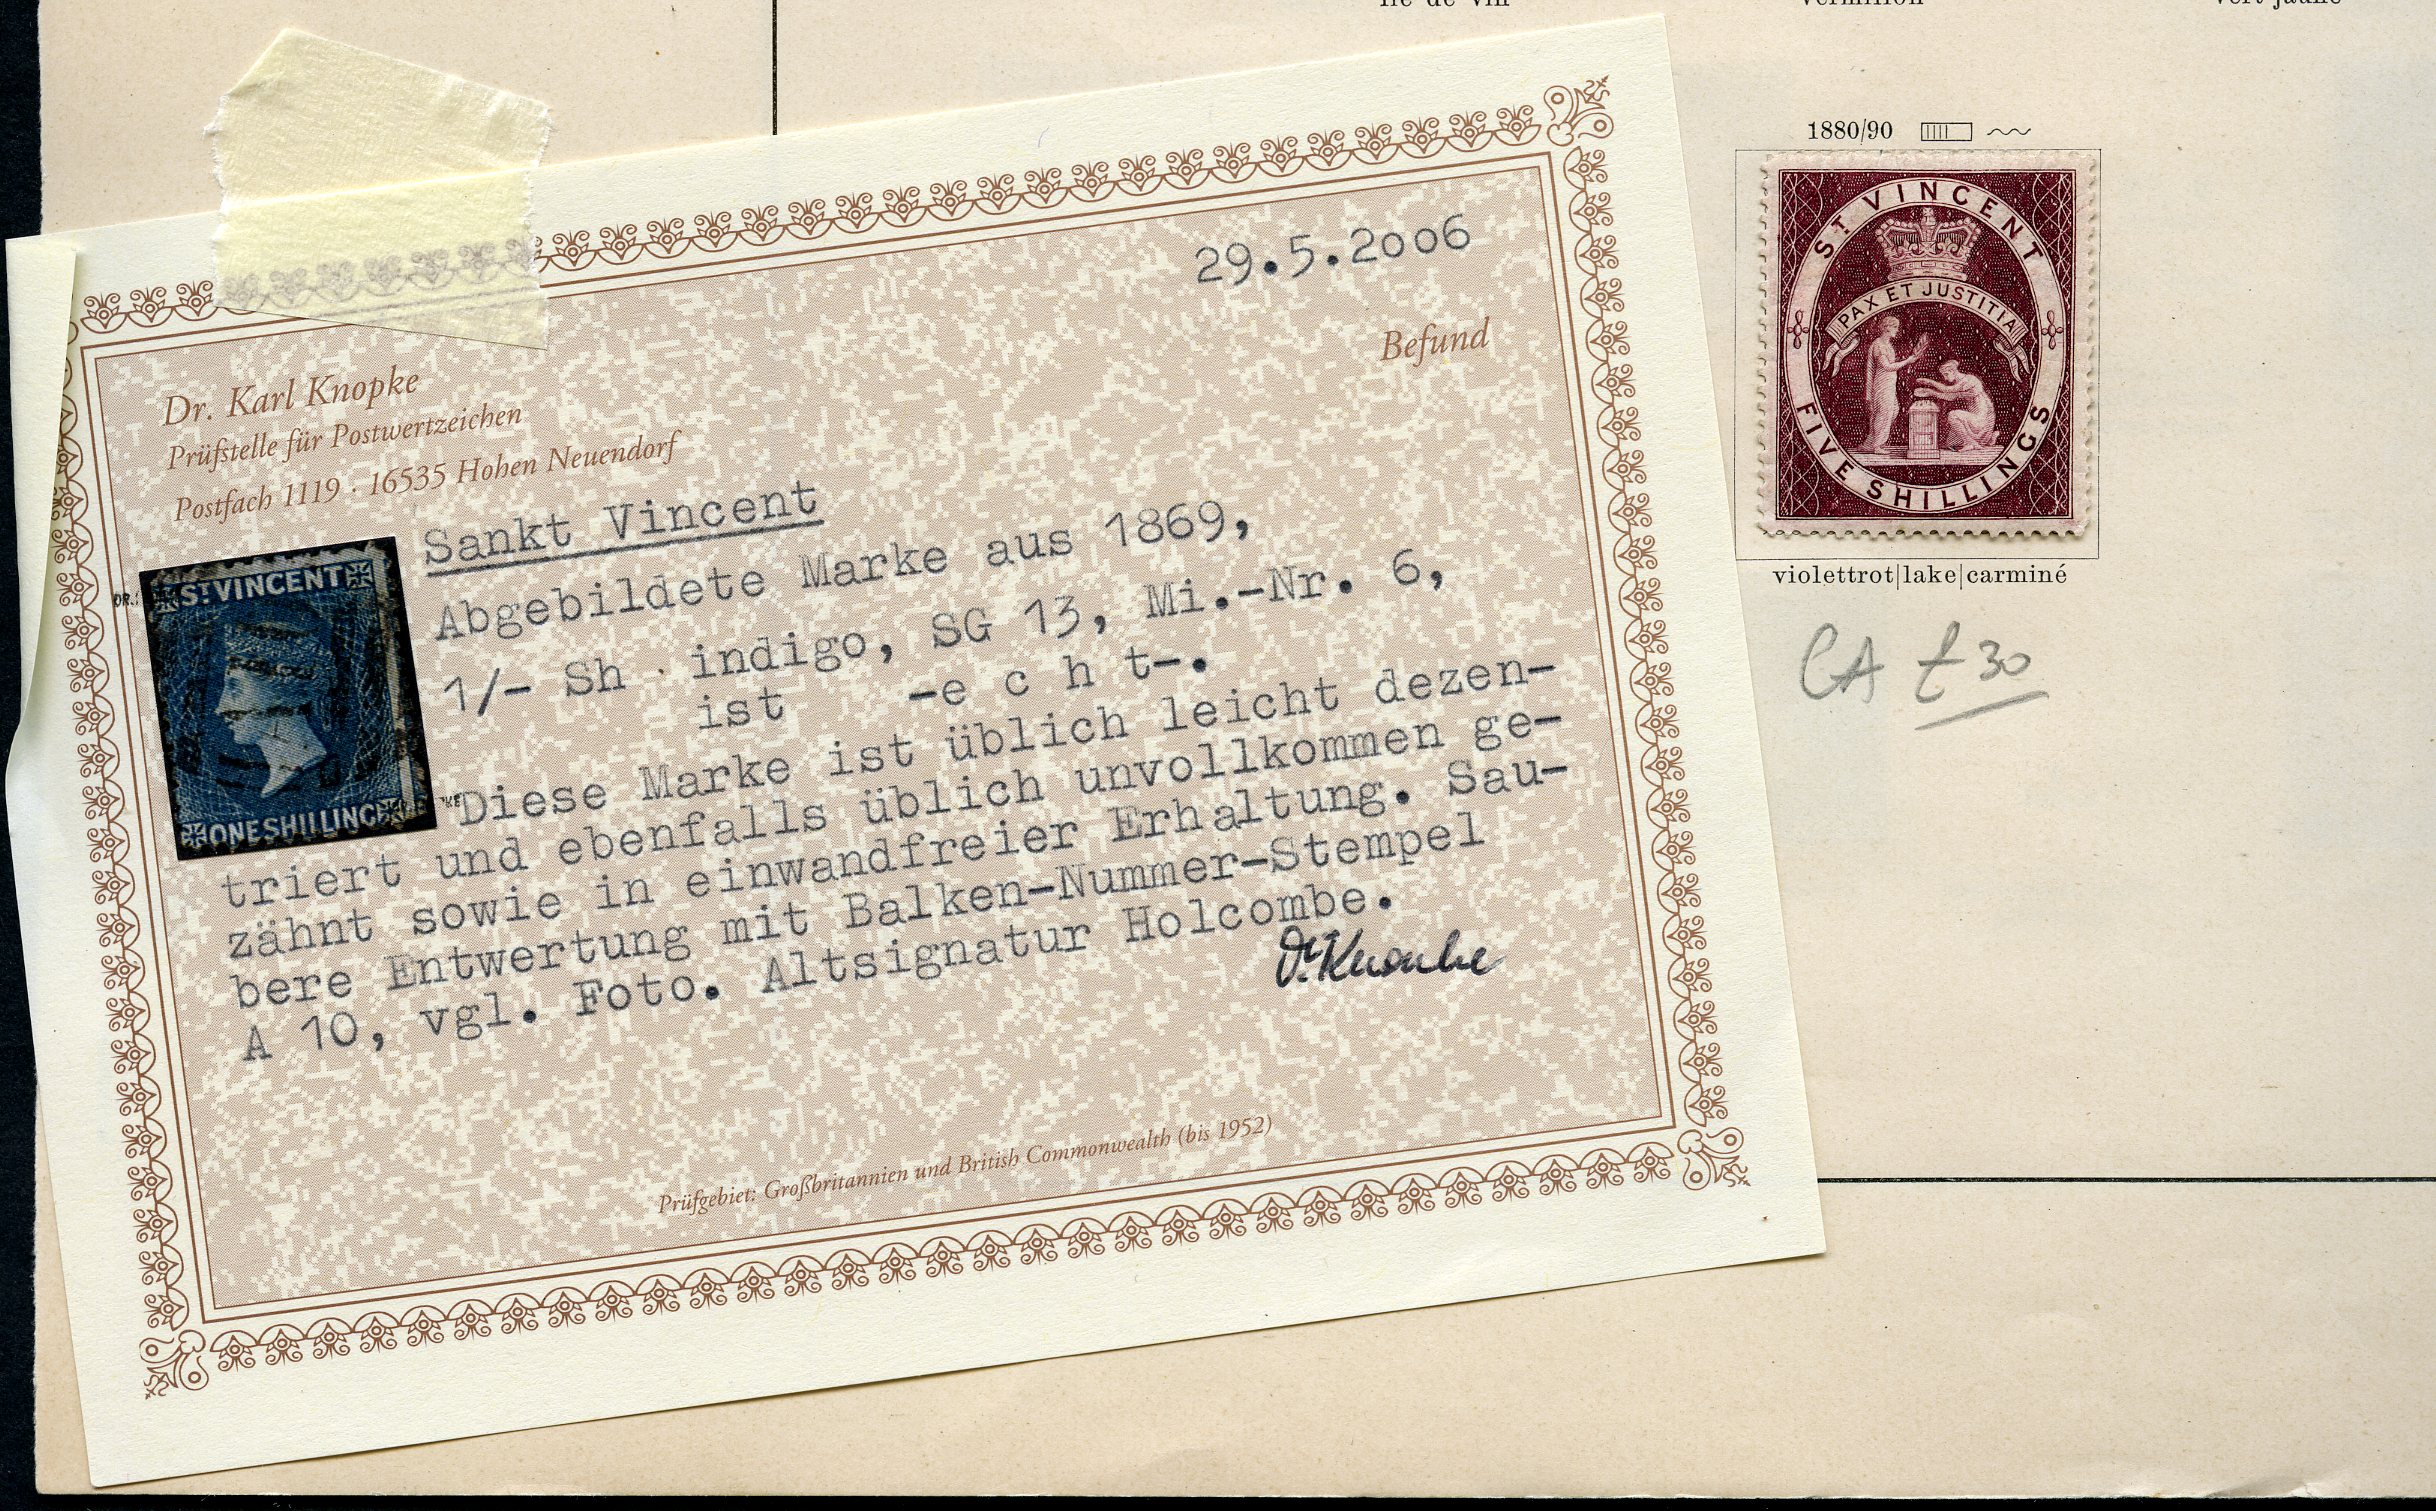 vermillon
vert-jaune
29.5.2006
Befund
Dr. Karl Knopke
Prüfstelle für Postwertzeichen
Postfach 1119 · 16535 Hohen Neuendorf
Sankt Vincent
Abgebildete Marke aus 1869,
1/- Sh . indigo, SG 13, Mi.-Nr. 6,
ist -e c h t-.
Diese Marke ist üblich leicht dezen-
triert und ebenfalls üblich unvollkommen ge-
zähnt sowie in einwandfreier Erhaltung. Sau-
bere Entwertung mit Balken-Nummer-Stempel
A 10, vgl. Foto. Altsignatur Holcombe.
Dr. Knopke
Prüfgebiet: Großbritannien und British Commonwealth (bis 1952)
ST. VINCENT
ONE SHILLING
1880/90
ST. VINCENT
PAX ET JUSTITIA
FIVE SHILLINGS
violettrot|lake|carminé
CA £30